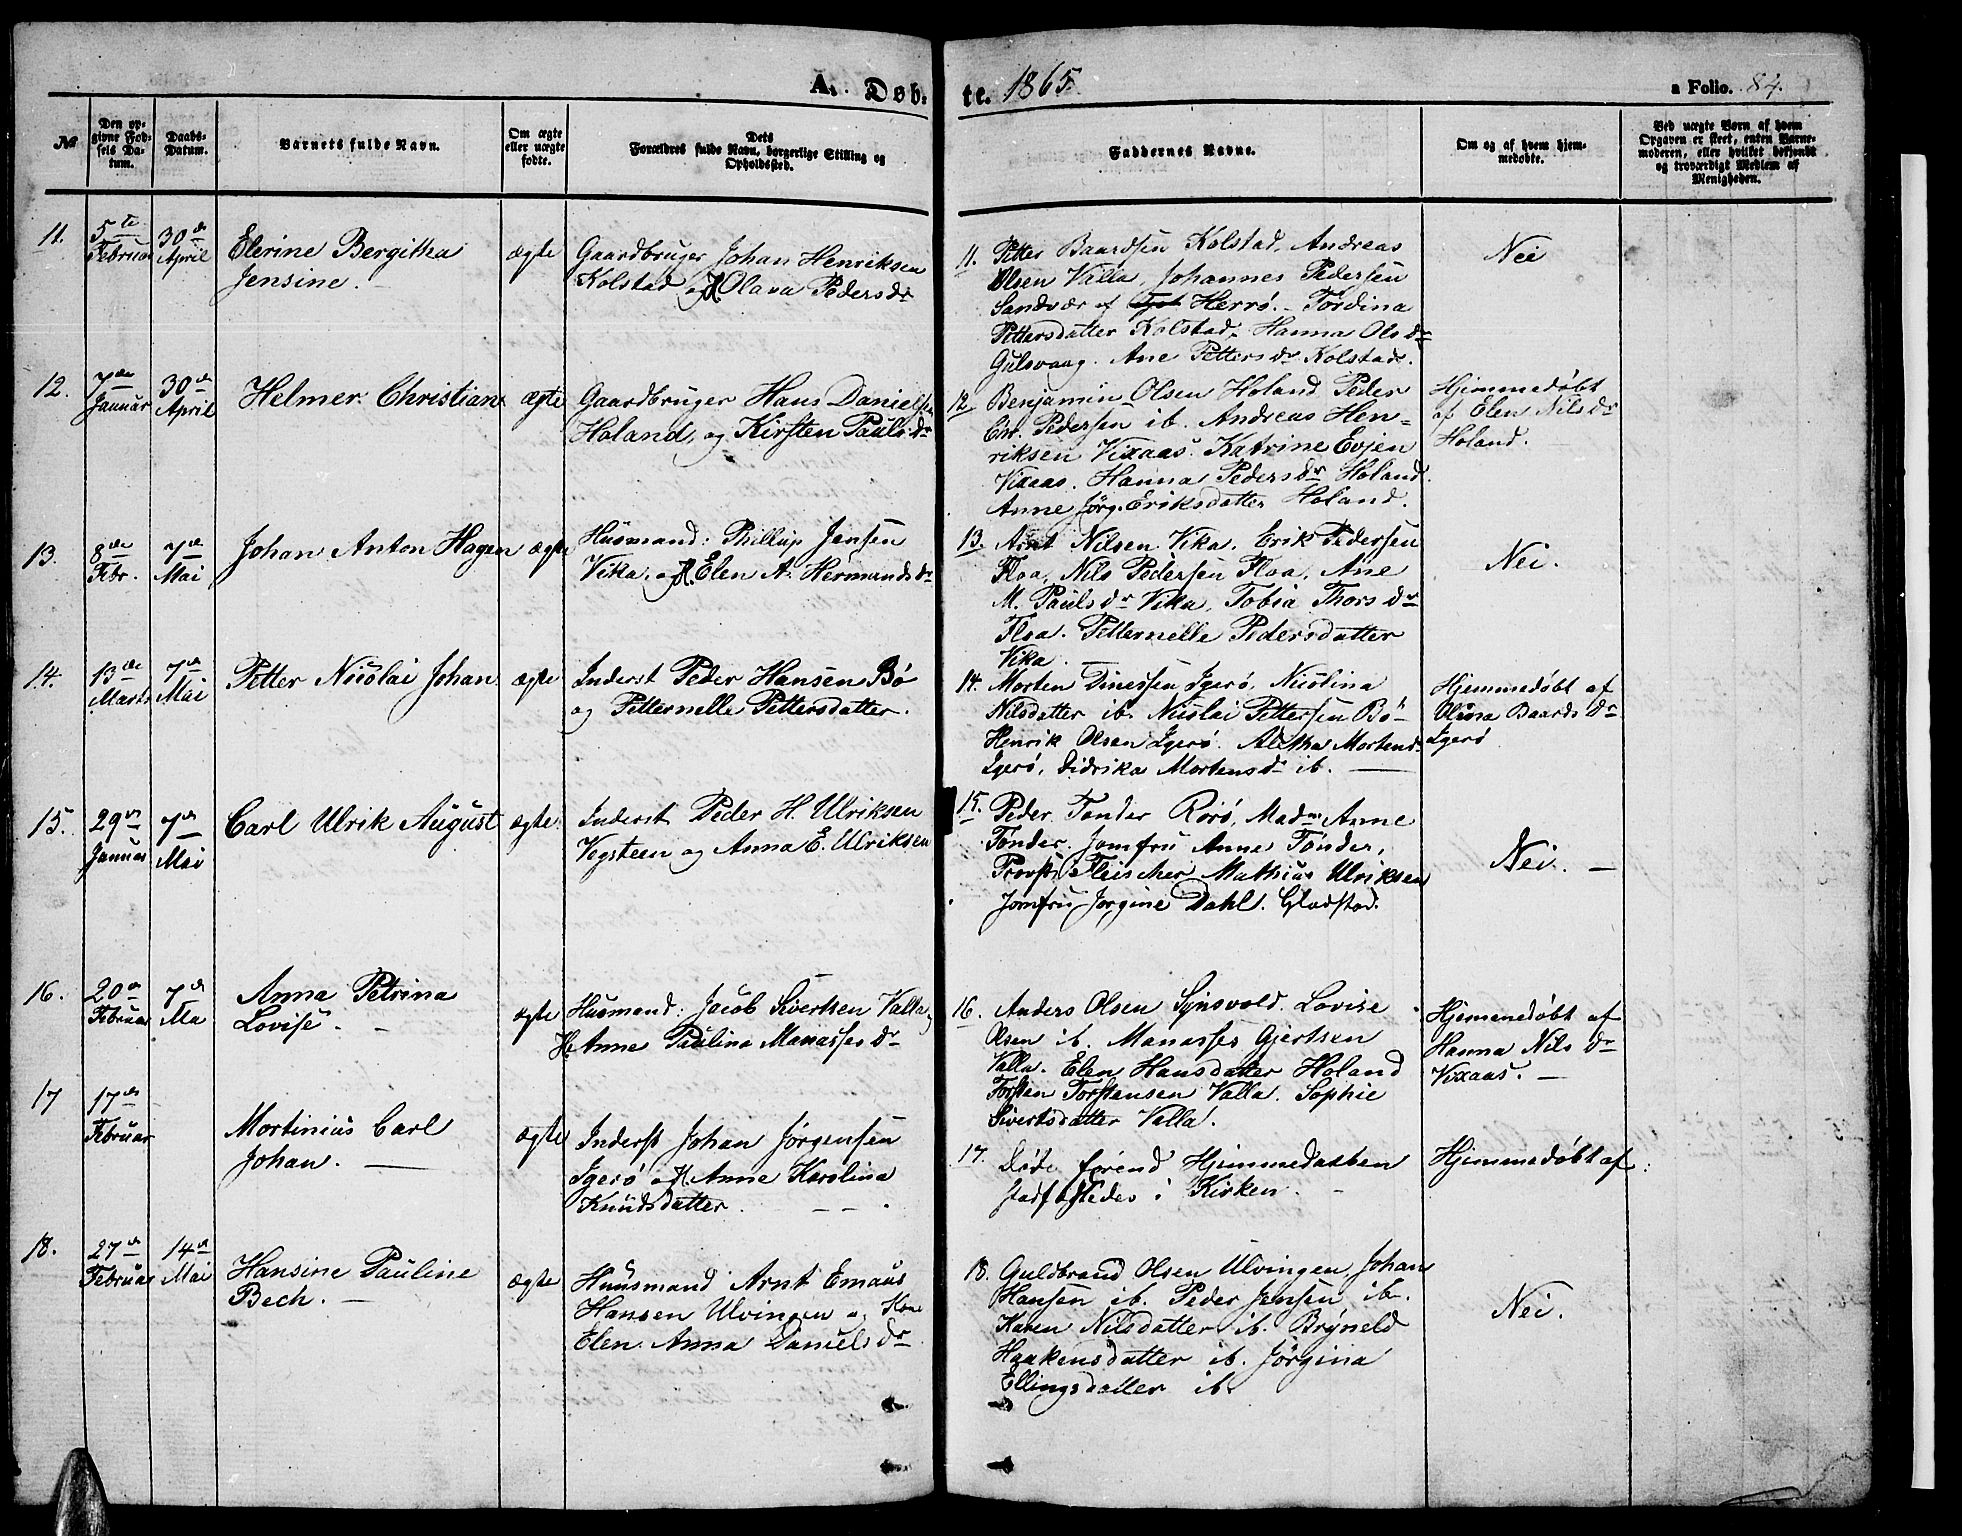 A. Døb-
te. 1865.
a Folio. 84.
№
Den op-
givne Fød-
sels Da-
tum.
Daabs-
Datum.
Barnets fulde Navn.
Om ægte
eller uægte
fødte.
Dets
Forældres fulde Navn, borgerlige Stilling og
Opholdssted.
Faddernes Navne.
Om og af hvem hjem-
medøbte.
Ved uægte Børn af hvem
Opgaven er skeet, enten Barne-
moderen, eller hvilket bekjendt
og troværdigt Medlem af
Menigheden.
11.
5te
Februar
30de
April
Elerine Bergitha
Jensine.
ægte
Gaardbruger Johan Henriksen
Kolstad og H. Olava Pedersdr
11. Petter Baardsen Kolstad. Andreas
Olsen Valla, Johannes Pedersen
Sandvær af Herrø. Tordina
Pettersdatter Kolstad, Hanna Olsdr
Gulsvaag. Ane Pettersdr Kolstad.
Nei
12.
7de
Januar
30de
April
Helmer Christian
ægte
Gaardbruger Hans Danielsen
Holand, og Kirsten Paulsdr
12 Benjamin Olsen Holand Peder
Chr. Pedersen ib. Andreas Hen-
riksen Vixaas. Katrine Evjen
Vixaas. Hanna Pedersdr Holand.
Anne Jørg. Eriksdatter Holand.
Hjemmedøbt
af Elen Nilsdr
Holand.
13.
8de
Febr.
7de
Mai
Johan Anton Hagen
ægte
Husmand: Phillip Jensen
Vika, og H. Elen A. Hermandsdr
13. Arnt Nilsen Vika. Erik Pedersen
Floa, Nils Pedersen Floa, Ane
M. Paulsdr Vika, Tobia Thorsdr
Floa. Petternelle Pedersdatter
Vika.
Nei.
14.
13de
Marts
7de
Mai
Petter Nicolai Johan
ægte
Inderst Peder Hansen Bø
og Petternelle Pettersdatter.
14. Morten Dinessen Igerø, Nicolina
Nilsdatter ib. Nicolai Pettersen Bø
Henrik Olsen Igerø. Aletha Mortensd.
Igerø, Didrika Mortensdr ib.
Hjemmedøbt af
Olina Baardsdr
Igerø
15.
29de
Januar
7de
Mai
Carl Ulrik August
ægte
Inderst Peder H. Ulriksen
Vegsteen og Anna E. Ulriksen
15. Peder Tønder Rørø, Madm Anne
Tønder. Jomfru Anne Tønder,
Provst Fleischer Mathias Ulriksen
Jomfru Jørgine Dahl. Gladstad.
Nei.
16.
20de
Februar
7de
Ma
Anna Petrina
Lovise.
ægte
Husmand: Jacob Sivertsen Valla,
H. Anne Paulina Manassesdr
16. Anders Olsen Synsvold. Lovise
Olsen ib. Manasses Gjertsen
Valla. Elen Hansdatter Holand
Torsten Torstensen Valla. Sophie
Sivertsdatter Valla.
Hjemmedøbt af
Hanna Nilsdr
Vixaas.
17
17de
Februar
Mortinius Carl
Johan.
ægte
Inderst Johan Jørgensen
Igerø og H. Anne Karolina
Knudsdatter.
17. Døde førend Hjemmedaaben
stadfæstedes i Kirken.
Hjemmedøbt af:
18.
27de
Februar
14de
Mai
Hansine Pauline
Bech.
ægte
Huusmand Arnt Emaus
Hansen Ulvingen og Kone
Elen Anna Danielsdr
18. Guldbrand Olsen Ulvingen, Johan
Hansen ib. Peder Jensen ib.
Karen Nilsdatter ib. Brynild
Haakensdatter ib. Jørgina
Ellingsdatter ib.
Nei.